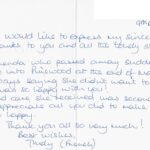 would like to express my since
anks to you and all the lovely s
who passed away sudde
into Pinewood at the end of
saying she didn't want to
was so happy with you!
care she received was second
appreciate all you did to make
happy.
Thank you all so very much!
Best wishes,
Trudy (French)